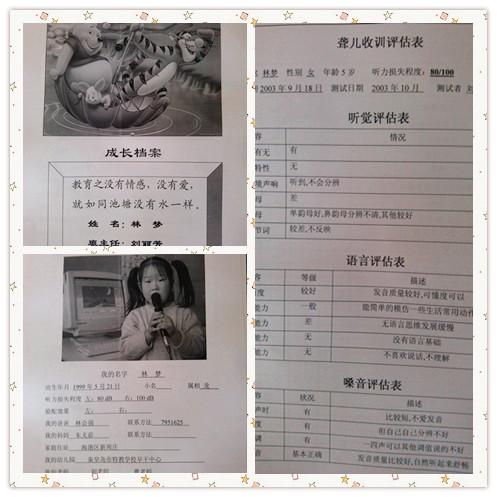 成长档案
教育之没有情感，没有爱，
就如同池塘没有水一样。
姓 名：林 梦
班主任：刘丽芳
我的名字 林 梦
出生年月 1999年5月21日 小名 属相 龙
听力损失程度 左：80 dB 右：100 dB
验配效果 左： 右：
我的爸爸 林会强 联系方法 7951625
我的妈妈 联系方法
家庭住址
我的幼儿园 秦皇岛市特教学校早干中心
聋儿收训评估表
林梦 性别 女 年龄 5 岁 听力损失程度：80/100
2003年9月18日 测试日期 2003年10月 测试者
听觉评估表
情况
有无 有
特性 无
境声响 听到,不会分辨
母 差
母 单韵母好,鼻韵母分辨不清,其他较好
节词 较差,不反映
语言评估表
等级 描述
度 较好 发音质量较好,可懂度可以
能力 一般 能简单的模仿一些生活常用动作
能力 差 无语言思维发展缓慢
能力 无 没有语言基础
能力 无 不喜欢说话,不理解
嗓音评估表
状况 描述
声时 有 比较短,不爱发音
度 有 但自己自己分辨不好
调 有 一四声可以其他调值说的不好
音 基本正确 发音质量比较好,自然听起来舒畅